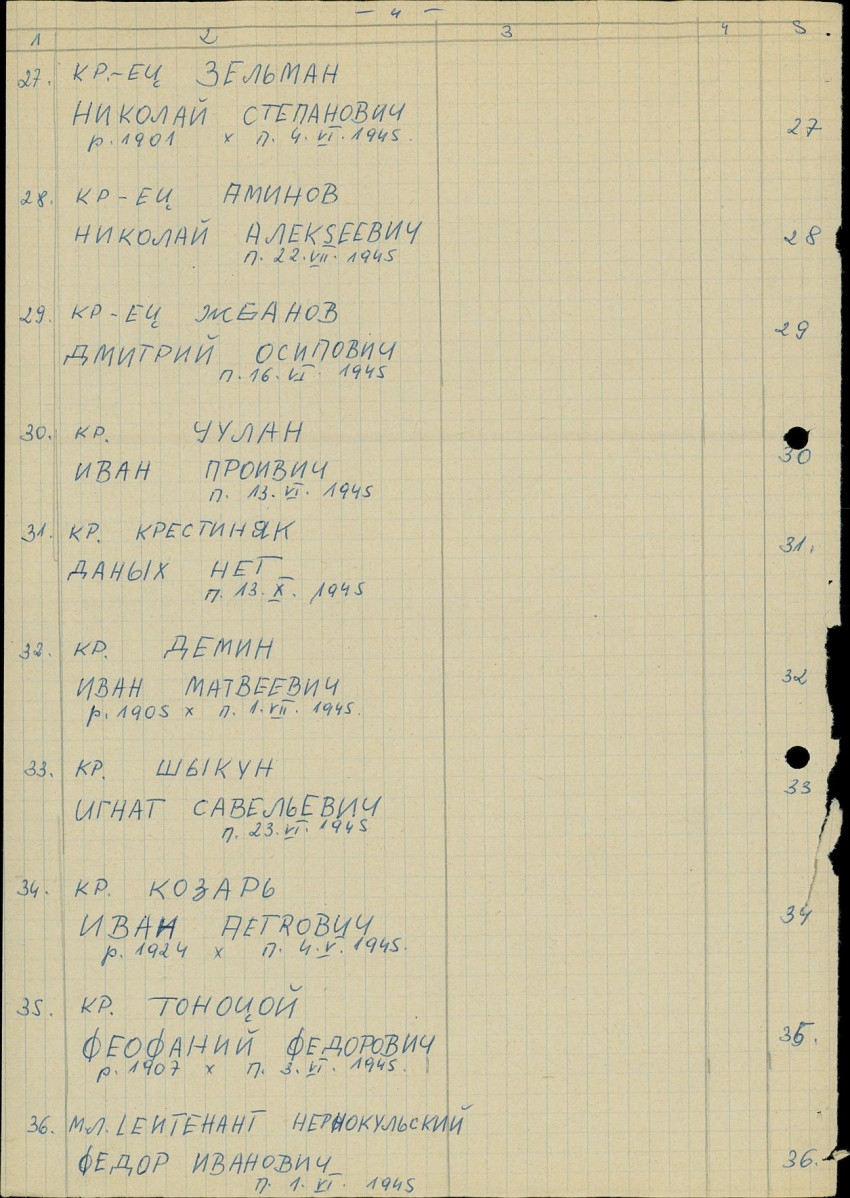 — 4 —
1 2 3 4 5
27. КР.-ЕЦ ЗЕЛЬМАН
НИКОЛАЙ СТЕПАНОВИЧ
р. 1901 х п. 4. VI. 1945. 27
28. КР-ЕЦ АМИНОВ
НИКОЛАЙ АЛЕКSЕЕВИЧ 28
п. 22. VII. 1945
29. КР-ЕЦ ЖБАНОВ 29
ДМИТРИЙ ОСИПОВИЧ
п. 16. VI 1945
30. КР. ЧУЛАН
ИВАН ПРОИВИЧ 30
п. 13. VI. 1945
31. КР. КРЕСТИНЯК 31.
ДАНЫХ НЕТ
п. 13. X. 1945
32. КР. ДЕМИН
ИВАН МАТВЕЕВИЧ 32
р. 1905 х п. 1. VII. 1945.
33. КР. ШЫКУН 33
ИГНАТ САВЕЛЬЕВИЧ
п. 23. VI. 1945
34. КР. КОЗАРЬ
ИВАН ПЕТRОВИЧ 34
р. 1924 х п. 4. V. 1945.
35. КР. ТОНОЦОЙ
ФЕОФАНИЙ ФЕДОРОВИЧ 35.
р. 1907 х п. 3. VI. 1945.
36. МЛ. LЕИТЕНАНТ НЕРНОКУЛЬСКИЙ
ФЕДОР ИВАНОВИЧ 36.
п. 1. VI. 1945